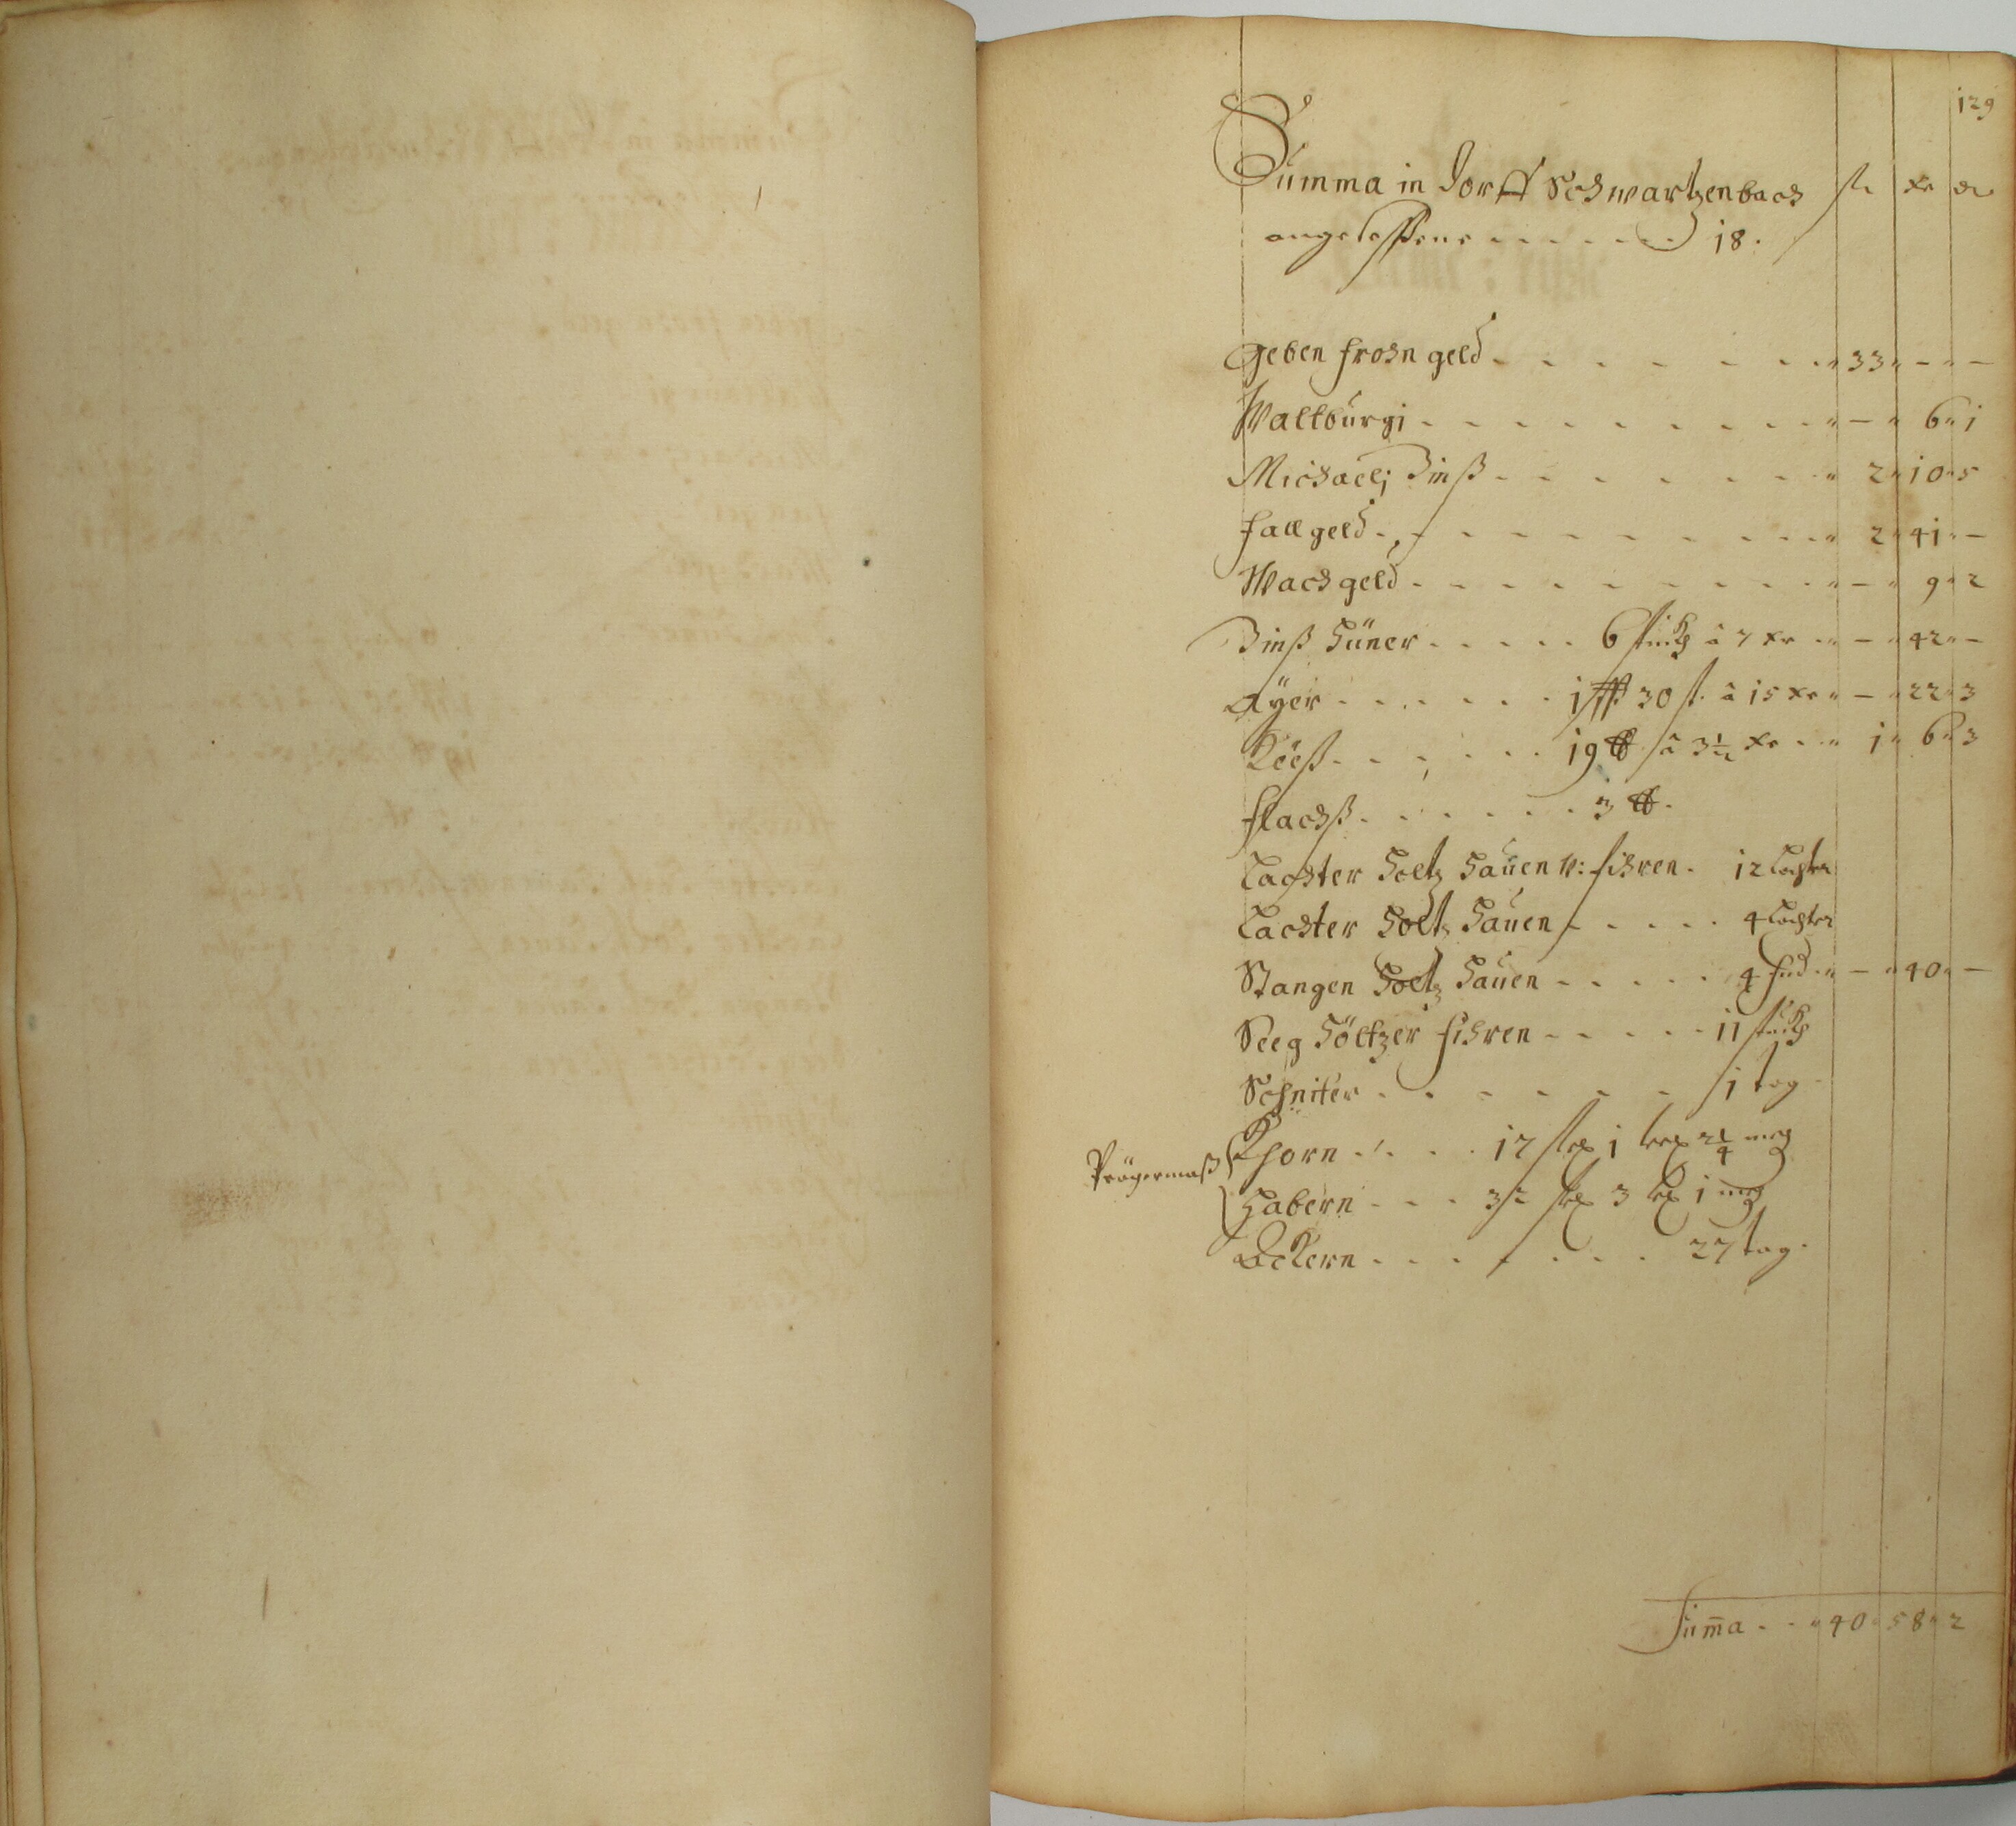 129
Summa in Dorff Schwartzenbach fl xr dn
angesessene - - - - - - 18.
geben frohn geld - - - - - - - " 33 " - " -
Waltburgi - - - - - - - - - " - " 6 " 1
Michaeli Zinß - - - - - - - " 2 " 10 " 5
fall geld - - - - - - - - - " 2 " 41 " -
Wachgeld - - - - - - - - - " - " 9 " 2
Zinß Hüner - - - - - 6 stuckh â 7 xr - " - " 42 " -
Ayer - - - - - - 1 ßß 30 st. â 15 xr " - " 22 " 3
Kööß - - - - - - 19 ℔ â 3½ xr - " 1 " 6 " 3
flachß - - - - - - 3 ℔.
Lachter Holtz Hauen v: führen. 12 Lachter
Lachter Holtz Hauen - - - - - 4 Lachter
Stangen Holtz Hauen - - - - - 4 fud. " - " 40 " -
Seeg Höltzer führen - - - - - 11 stuckh
Schniter - - - - - - 1 tag
Pragermaß
Khorn - - - - 17 1 2¼
Habern - - - 32 3 1
Ackern - - - - - - 27 tag.
Sum̄a - - " 40 " 58 " 2